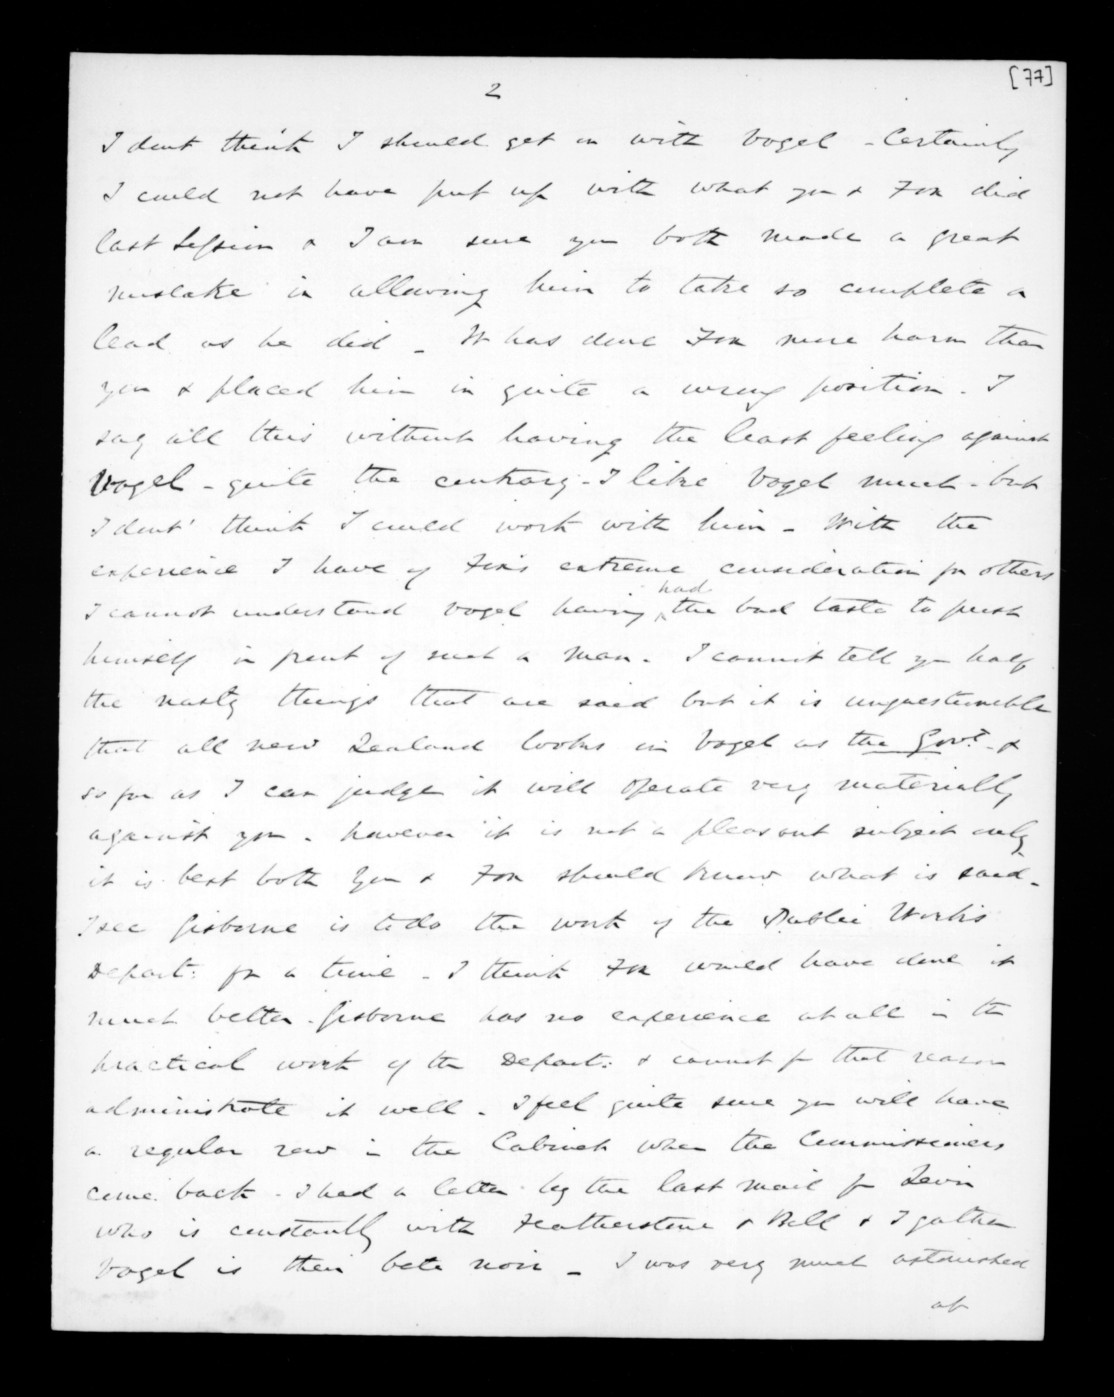 [77]
2
I dont think I should get on with Vogel - Certainly
I could not have put up with what you & Fox did
last Session & I am sure you both made a great
mistake in allowing him to take so complete a
lead as he did - It has done Fox more harm than
you & placed him in quite a wrong position. I
say all this without having the least feeling against
Vogel - quite the contrary - I like Vogel much - but
I dont' think I could work with him - With the
experience I have of Fox's extreme consideration for others
I cannot understand Vogel having had the bad taste to push
himself in front of such a man. I cannot tell you half
the nasty things that are said but it is unquestionable
that all New Zealand looks on Vogel as the Govt. - &
so far as I can judge it will operate very materially
against you. however it is not a pleasant subject only
it is best both you & Fox should know what is said -
I see Gisborne is to do the work of the Public Works
Depart: for a time - I think Fox would have done it
much better. Gisborne has no experience at all in the
practical work of the Depart: & cannot for that reason
administrate it well - I feel quite sure you will have
a regular row in the Cabinet when the Commissioners
come back - I had a letter by the last mail fr Levin
who is constantly with Featherstone & Bell & I gather
Vogel is their bete noir - I was very much astonished
at